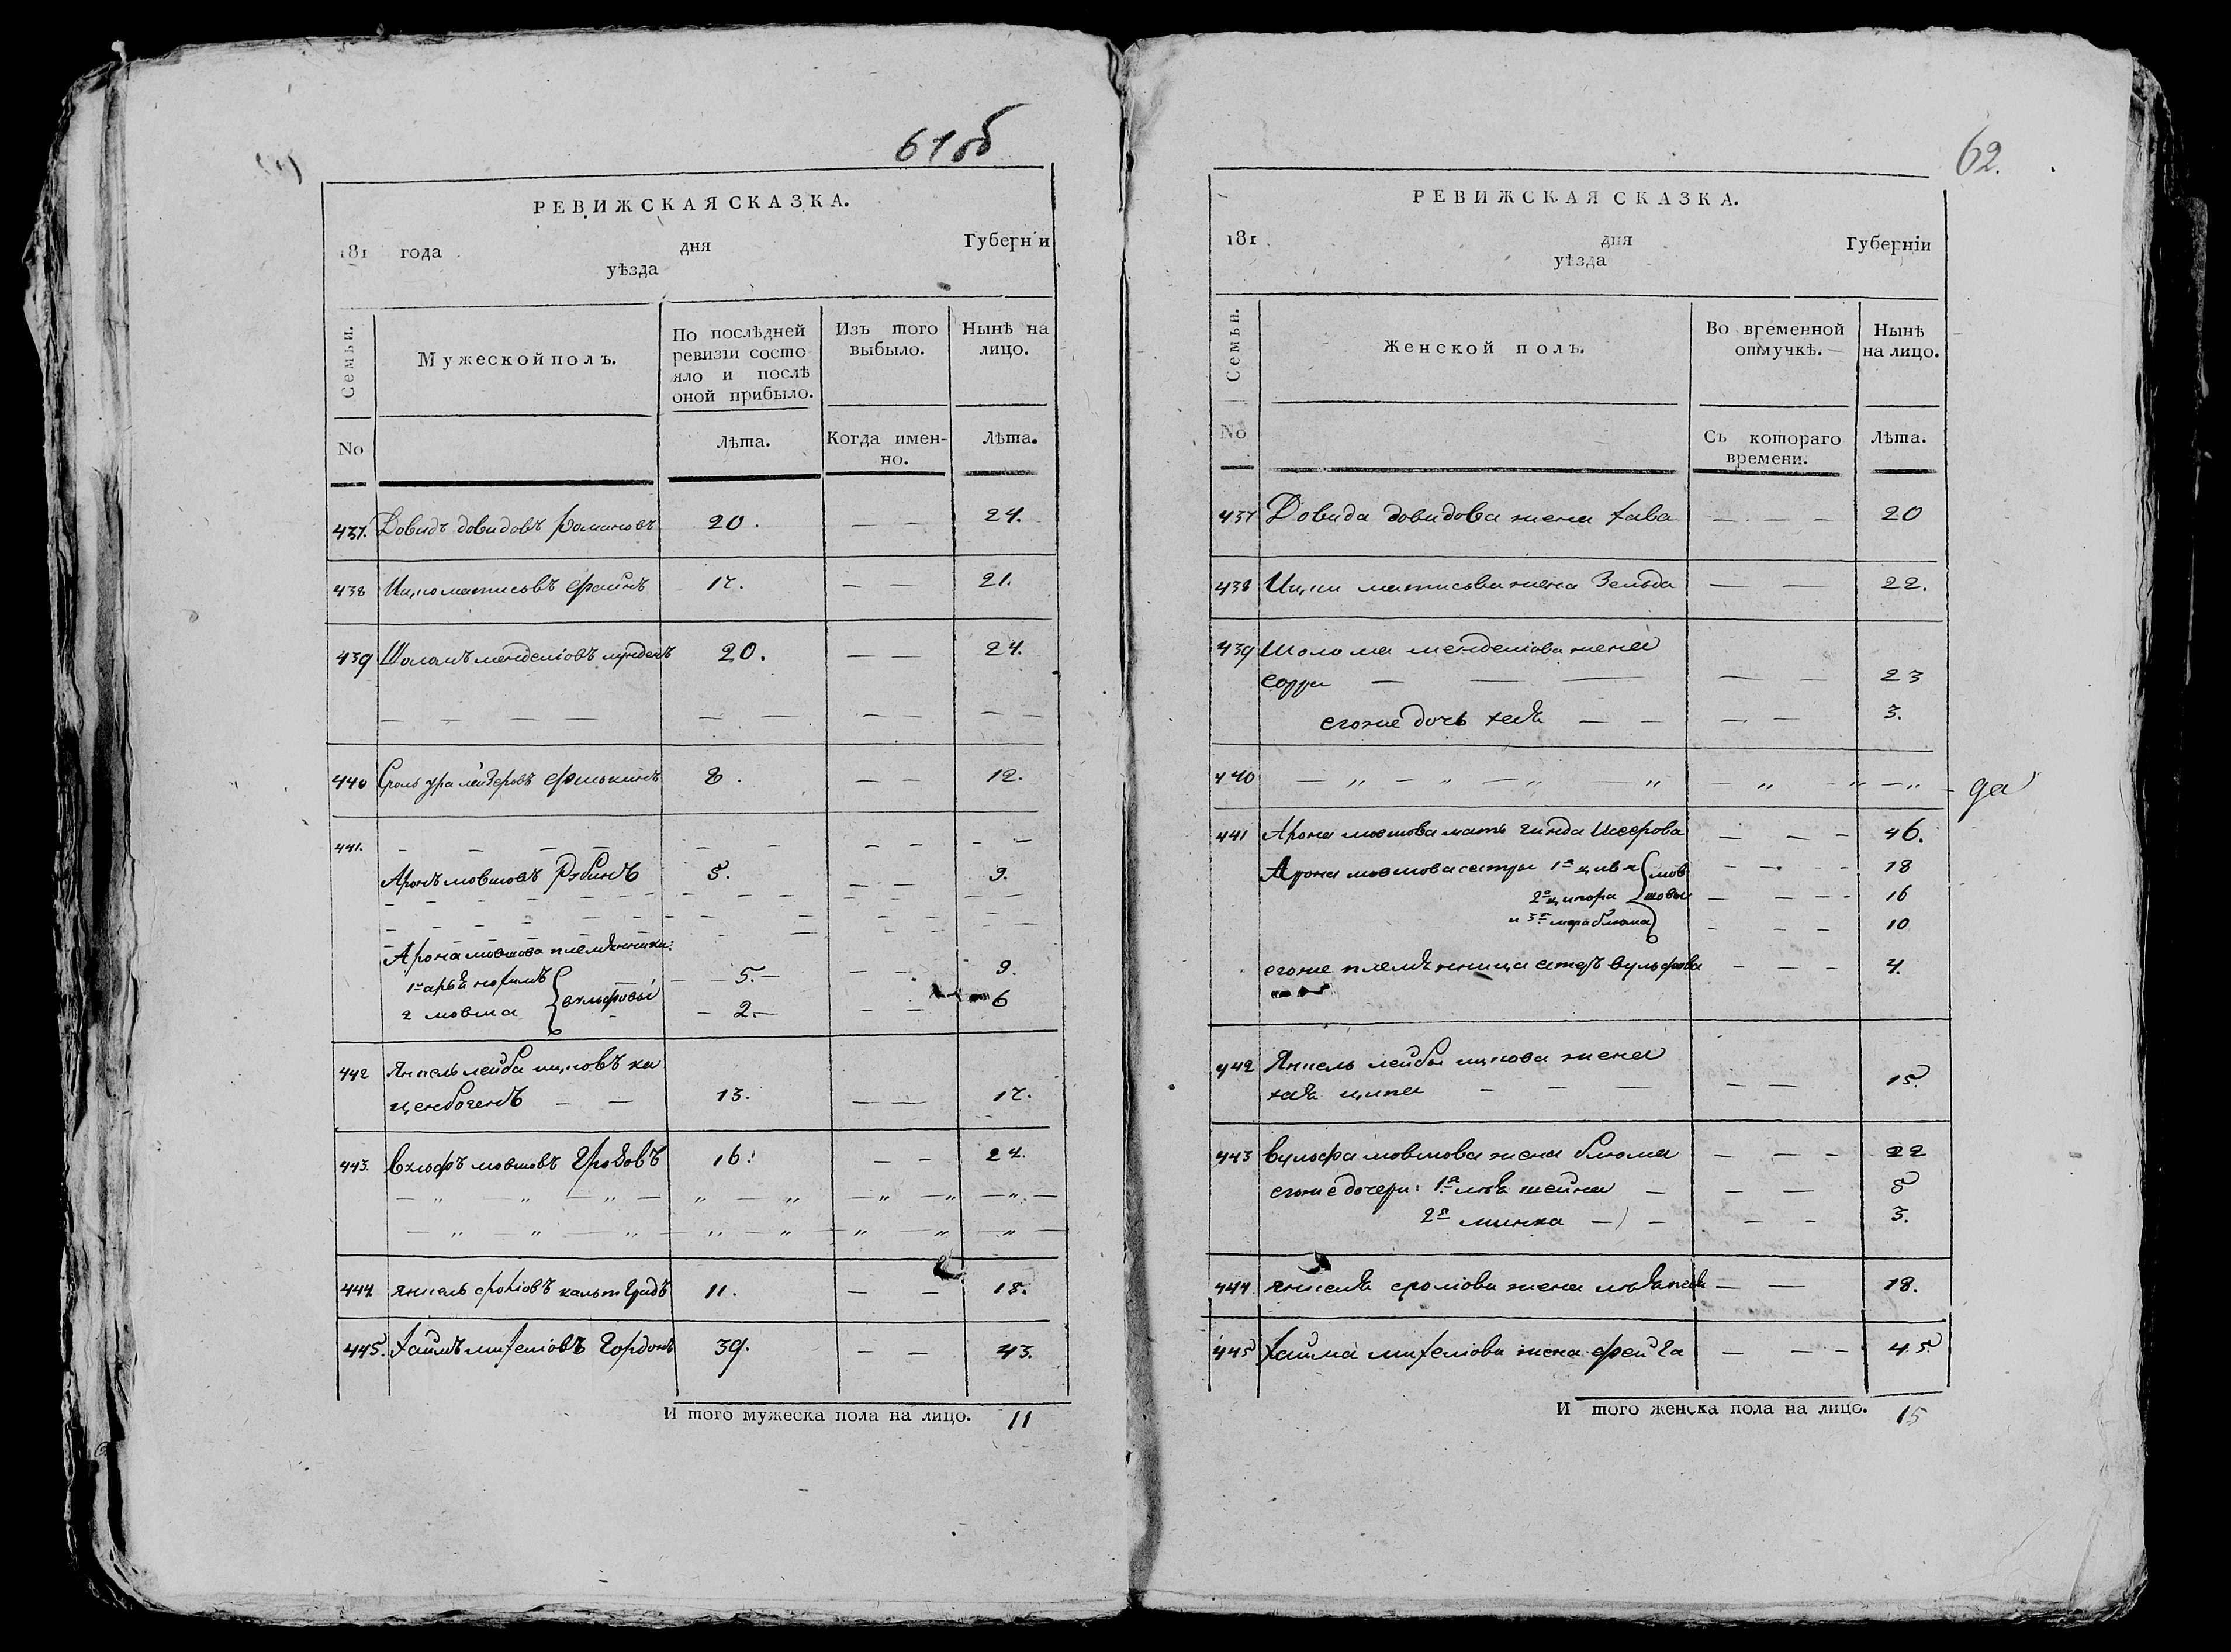 61об
РЕВИЖСКАЯ СКАЗКА.
181 года дня Губерніи
уѣзда
Семьи.
Мужеской полъ.
По послѣдней ревизіи состояло и послѣ оной прибыло.
Изъ того выбыло.
Нынѣ на лицо.
No
Лѣта.
Когда именно.
Лѣта.
437. Довидъ довидовъ 20. — — 24.
438 Ицко матисовъ 17. — — 21.
439 Шоломъ менделіовъ 20. — — 24.
— — — —
440 8. — — 12.
441. — — — —
Аронъ мовшовъ Рубинъ 5. — — 9.
Арона мовшова племянники:
1й арья нохимъ 5. — — 9.
2 мовша вульфовы 2. — — 6
442 Янкель лейба ицковъ ка
ценбогенъ — — 13. — — 17.
443. Вульфъ мовшовъ 16. — — 24.
— „ — „ — „ —
— „ — „ — „ —
444 янкель сроліовъ 11. — — 15.
445. Хаимъ михеліовъ Гордонъ 39. — — 43.
И того мужеска пола на лицо. 11
62.
РЕВИЖСКАЯ СКАЗКА.
181 дня Губерніи
уѣзда
Семьи.
Женской полъ.
Во временной отлучкѣ.
Нынѣ на лицо.
No
Съ котораго времени.
Лѣта.
437 Довида довидова жена хава — — — 20
438 Ицки матисова жена Зельда — — 22.
439 Шолома менделіова жена
сорра — — — — — 23
егоже дочь хая — — — — 3.
440 — „ — „ — „ — „ — „ — „ — „
441 Арона мовшова мать гинда — — — 46.
Арона мовшова сестры 1я цивя мов — — — 18
2я ципора шовы — — — 16
и 3я мера блюма — — — 10
егоже племянница естеръ вульфова — — — 4.
442 Янкель лейбы ицкова жена
хая ципа — — — — — 15.
443 вульфа мовшова жена блюма — — — 22
егоже дочери: 1я шейна — — — 5
2я минка — — — — 3.
444 янкеля сроліова жена — — 18.
445 хаима михеліова жена фейга — — — 45.
И того женска пола на лицо. 15